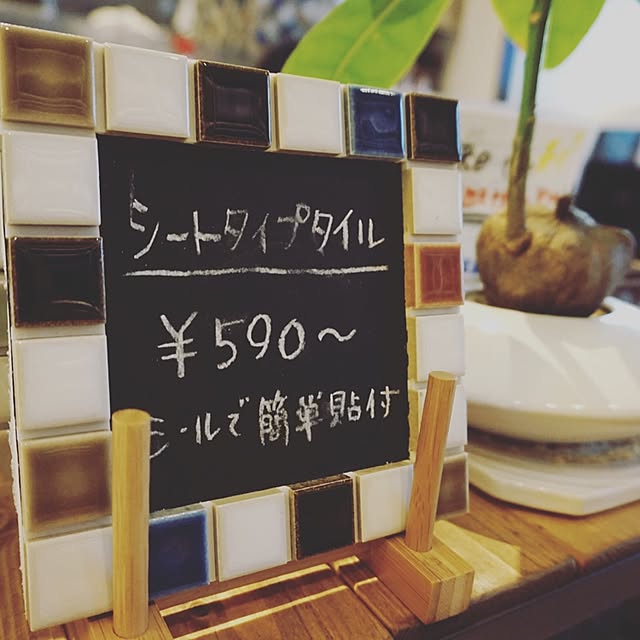 シートタイプタイル
¥590～
シールで簡単貼付